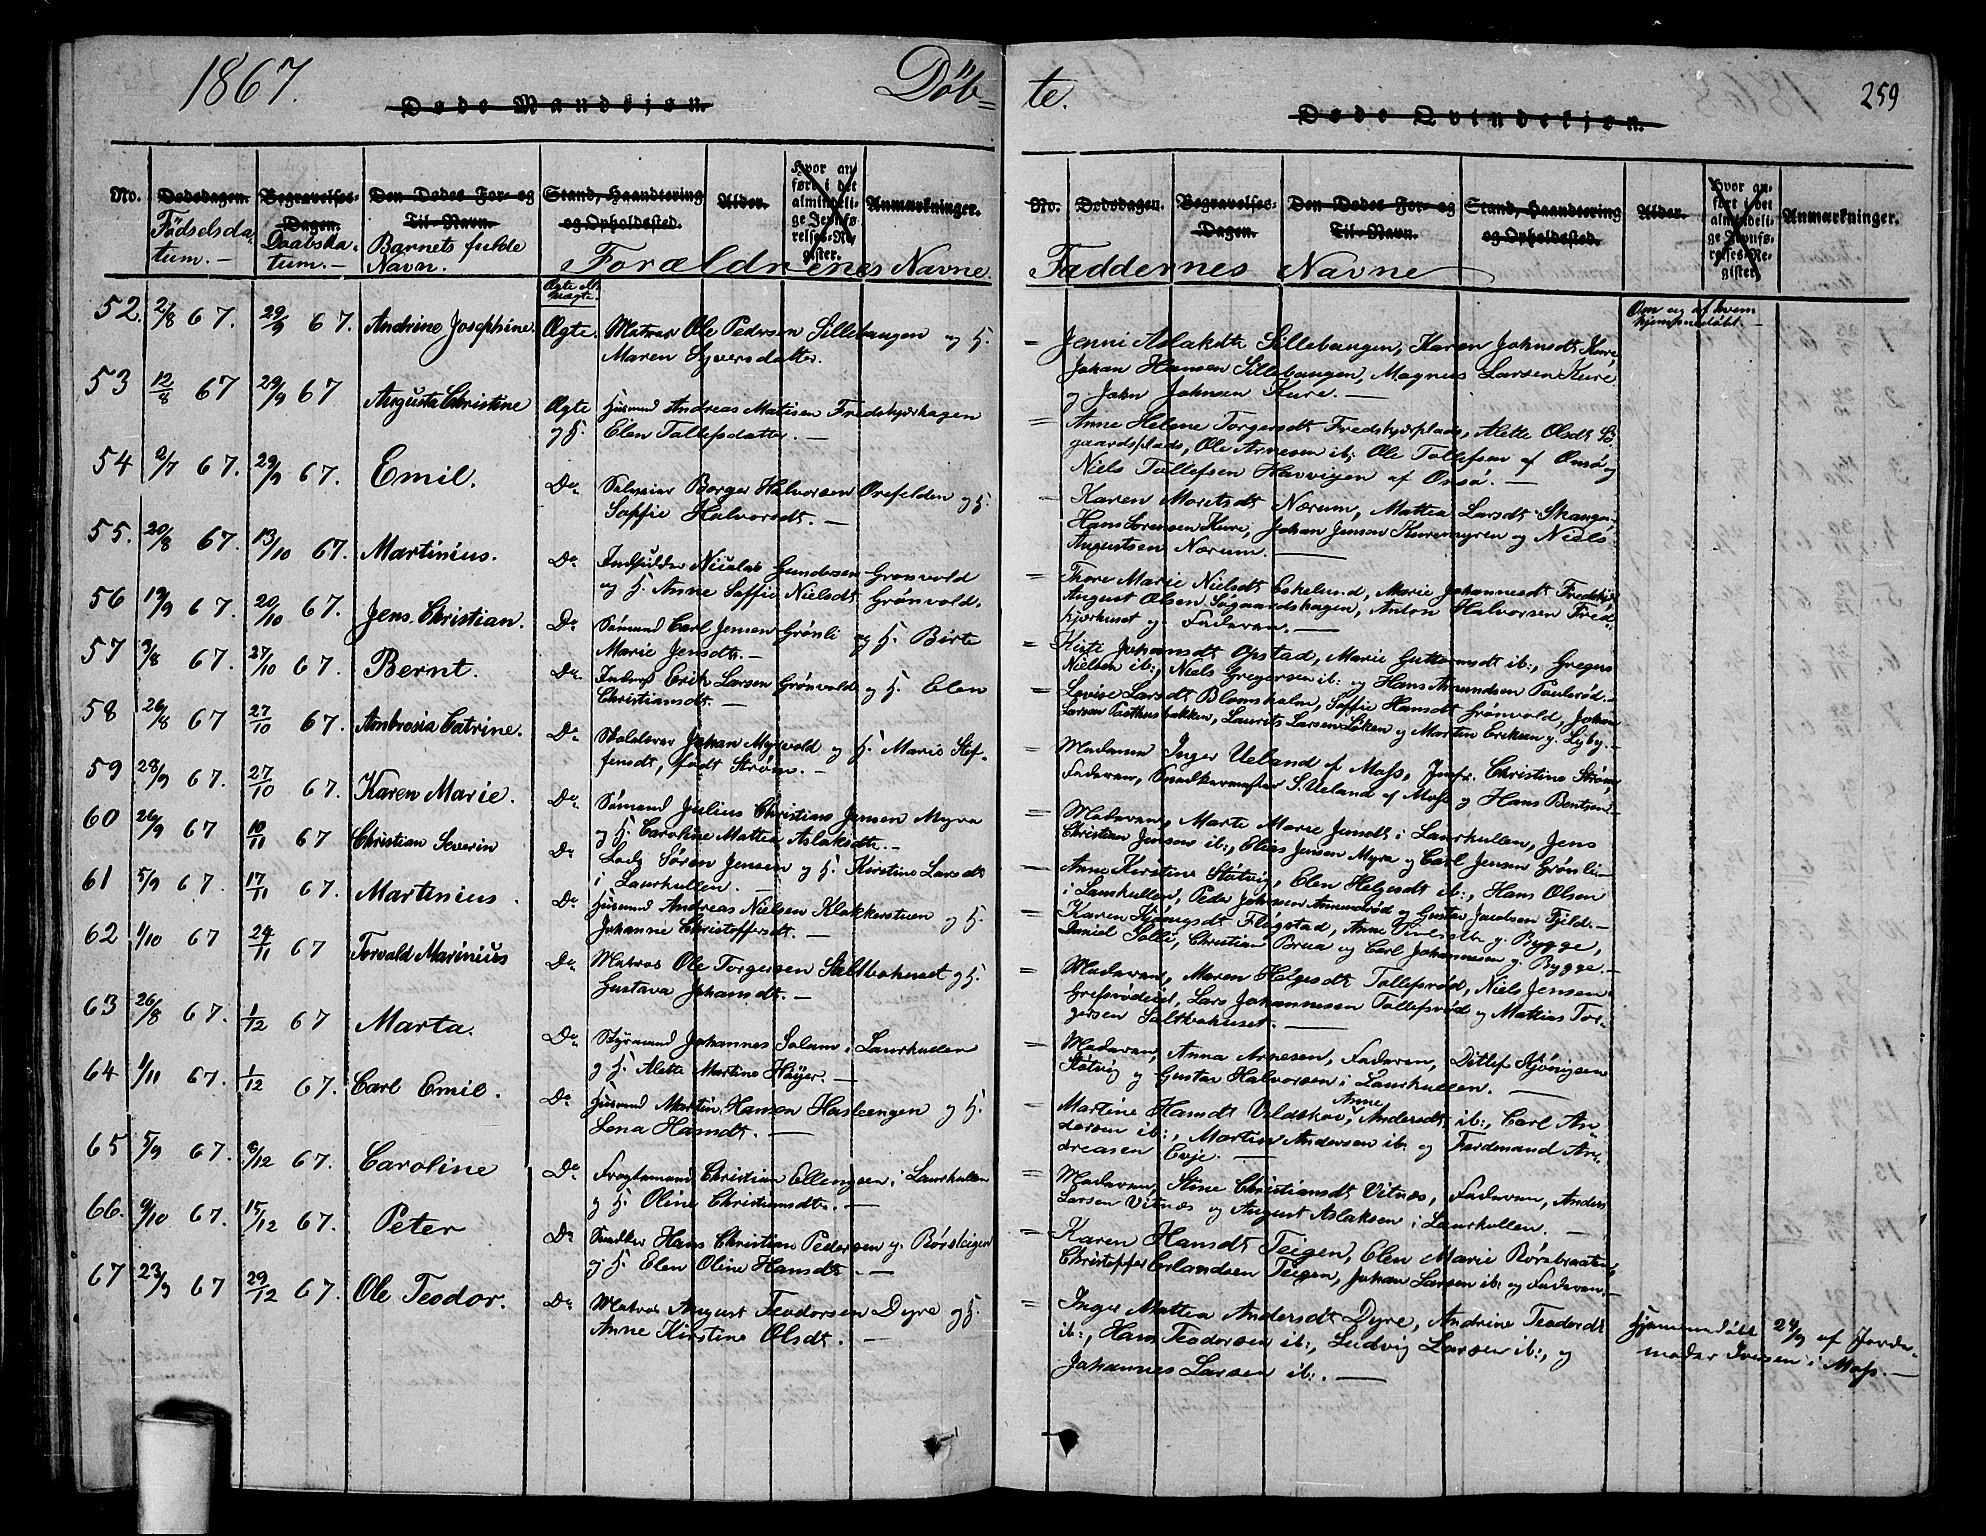 1867.
Döb=
te.
259
Døde Mandkjøn.
Døde Qvindekjøn.
No. Dødsdagen. Begravelses-Dagen. Den Dødes For- og Til-Navn. Stand, Haandtering og Opholdssted. Alder. Hvor anført i det almindelige Jevnførelses-Register. Anmærkninger.
Fødselsdatum.— Daabsdatum.— Barnets fulde Navn. Forældrenes Navne.
No. Dødsdagen. Begravelses-Dagen. Den Dødes For- og Til-Navn. Stand, Haandtering og Opholdssted. Alder. Hvor anført i det almindelige Jevnførelses-Register. Anmærkninger.
Faddernes Navne
Om og af hvem hjemmedøbt.—
52. 2/8 67. 29/9 67. Andrine Josephine. Ægte. Matros Ole Pedersen Sillebaugen og H.
Maren Syversdatter.
53 12/8 67 29/9 67 Augusta Christine Ægte Husmnd Andreas Matisen Fredskjærhagen
og H. Elen Tollefsdatter.—
54 2/7 67. 29/9 67. Emil. Do. Borger Halvorsen Orefelden og H.
Soffie Halvorsdt.—
55. 20/8 67. 13/10 67. Martinius. Do. Nicolai Gundersen Grønvold
og H. Anne Soffie Nielsdt. Grønvold.
56 19/9 67. 20/10 67. Jens Christian. Do. Sømand Carl Jensen Grønli og H. Birte
Marie Jensdt.—
57 3/8 67. 27/10 67. Bernt. Do. Erik Larsen Grønvold og H. Elen
Christiansdt.—
58 26/8 67 27/10 67. Ambrosia Catrine. Do. Skolelærer Johan Myrvold og H. Marie Stef-
fensdt, født Strøm.—
59 28/9 67. 27/10 67. Karen Marie. Do. Sømand Julius Christians Jensen Myra
og H. Caroline Mattea Aslaksdtr.—
60 26/9 67 10/11 67 Christian Severin Do. Lods Sören Jensen og H. Kirstine Larsdt
i Laurkullen.—
61 5/9 67. 17/11 67. Martinius. Do. Husmnd Andreas Nielsen Klokkerstuen og H.
Johanne Christoffersdt.—
62 1/10 67 24/11 67 Torvald Marinius Do. Matros Ole Torgersen Saltbohuset og H.
Gustava Johansdt.—
63 26/8 67. 1/12 67 Marta. Do. Styrmand Johannes Solum i Laurkullen
og H. Alette Martine Høyer.—
64 1/11 67. 1/12 67. Carl Emil. Do. Husmnd Martin Hansen Hasleengen og H.
Lena Hansdt.—
65 5/9 67. 8/12 67. Caroline Do. Fragtemand Christian Ellengsen i Laurkullen
og H. Oline Christiansdtr.—
66. 9/10 67. 15/12 67. Peter Do. Snedker Hans Christian Pedersen y. Rørsteigen
og H. Elen Oline Hansdt.—
67 23/9 67 29/12 67. Ole Teodor. Do. Matros August Teodorsen Dyre og H.
Anne Kirstine Olsdt.—
= Jenni Aslaksdtr Sillebaugen, Karen Johnsdt. Kure,
Johan Hansen Sillebaugen, Magnus Larsen Kure
og John Johnsen Kure.—
= Anne Helene Torgersdt. Fredskjærplads, Alette Olsdt. Sø-
gaardsplads, Ole Arnesen ib; Ole Tollefsen af Onsø og
Niels Tollefsen Haavigen af Onsø.—
= Karen Moritsdt. Nærum, Mattea Larsdt.
Hans Sørensen Kure, Johan Jensen Kuremyren og Niels
Augustsen Nærum.—
= Thore Marie Nielsdt. Eskelund, Marie Johannesdt.
August Olsen Søgaardshagen, Anton Halvorsen Fred-
kjærhuset og Faderen.—
= Johansdt Opstad, Marie Guttormsdt ib:, Gregers
Nielsen ib:, Niels Gregersen ib: og Hans Amundsen Paulsrød.—
= Lovise Larsdt Blomsholm, Soffie Hansdt Grønvold, Johan
Larsen Prsthusbakken, Laurits Larsen Løken og Martin Eriksen y. Lyby.—
= Madame Inger Ueland af Moss, Jmfr. Christine Strøm,
Faderen, S. Ueland af Moss og Hans Bentsen.—
= Moderen, Marte Marie Jensdt i Laurkullen, Jens
Christian Jensen ib:, Elias Jensen Myra og Carl Jensen Grønli.—
= Anne Kirstine Støtvig, Elen Helgesdt ib:, Hans Olsen
i Laurkullen, Peder Johnsen Amundrød og Gustav Jacobsen Fjeld.—
= Karen Flogstad, Anne y. Bygge,
Daniel Solli, Christian Brua og Carl Johannesen y. Bygge.—
= Moderen, Maren Helgesdt Tollefsrød, Niels Jensen
Grefsrødeiet, Lars Johannesen Tollefsrød og Mathias Tor-
gersen Saltbohuset.—
= Moderen, Anna Arnesen, Faderen, Ditlef Kjønigsen
Støtvig og Gustav Halvorsen i Laurkullen.—
= Martine Hansdt Vildskov, Anne Andersdt ib:, Carl An-
dersen ib:, Martin Andersen ib: og Ferdinand An-
dreasen Evje.—
= Moderen, Stine Christiansdt Vitnæs, Faderen, Anders
Larsen Vitnæs og August Aslaksen i Laurkullen.—
= Karen Hansdt Teigen, Elen Marie Rørsbraaten,
Christoffer Erlandsen Teigen, Johan Larsen ib: og Faderen.—
= Inger Mattea Andersdt Dyre, Andrine Teodorsdt
ib:, Hans Teodorsen ib:, Ludvig Larsen ib:, og
Johannes Larsen ib:.—
Hjemmedøbt 24/9 af Jorde-
moder Iversen i Moss.—